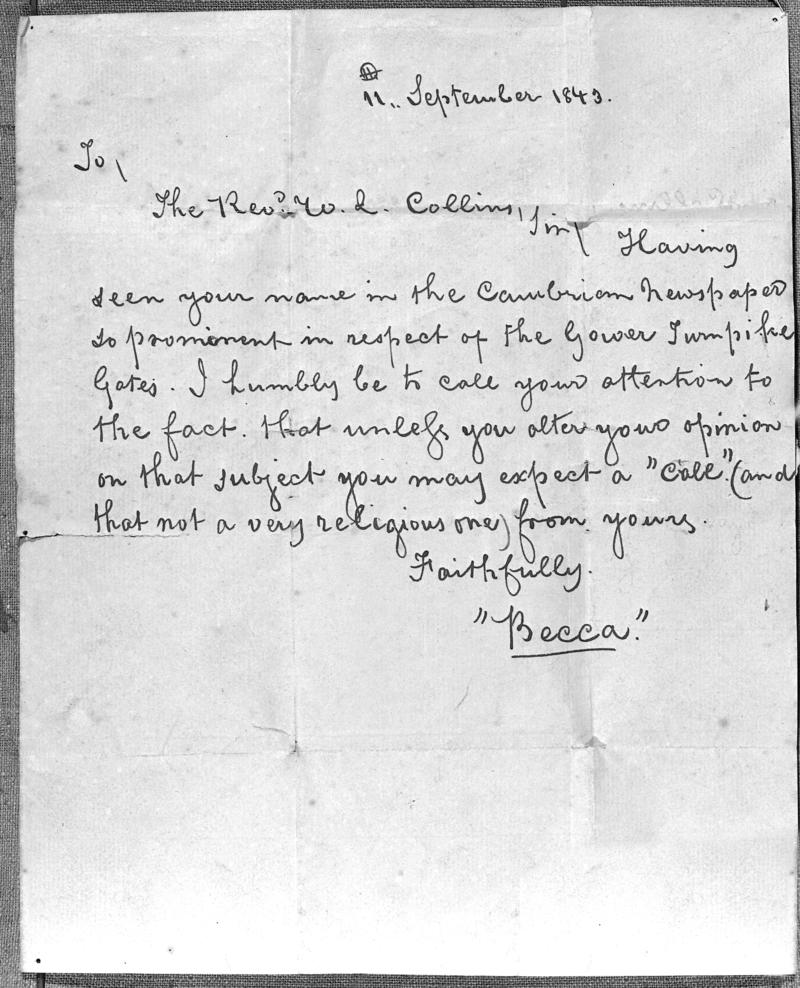 11.. September 1843.
To
The Revd. W. L. Collins, Sir
Having
seen your name in the Cambrian Newspaper
so prominent in respect of the Gower Turnpike
Gates. I humbly be to call your attention to
the fact. that unless you alter your opinion
on that subject you may expect a "Call". (and
that not a very religious one) from. yours.
Faithfully.
"Becca".